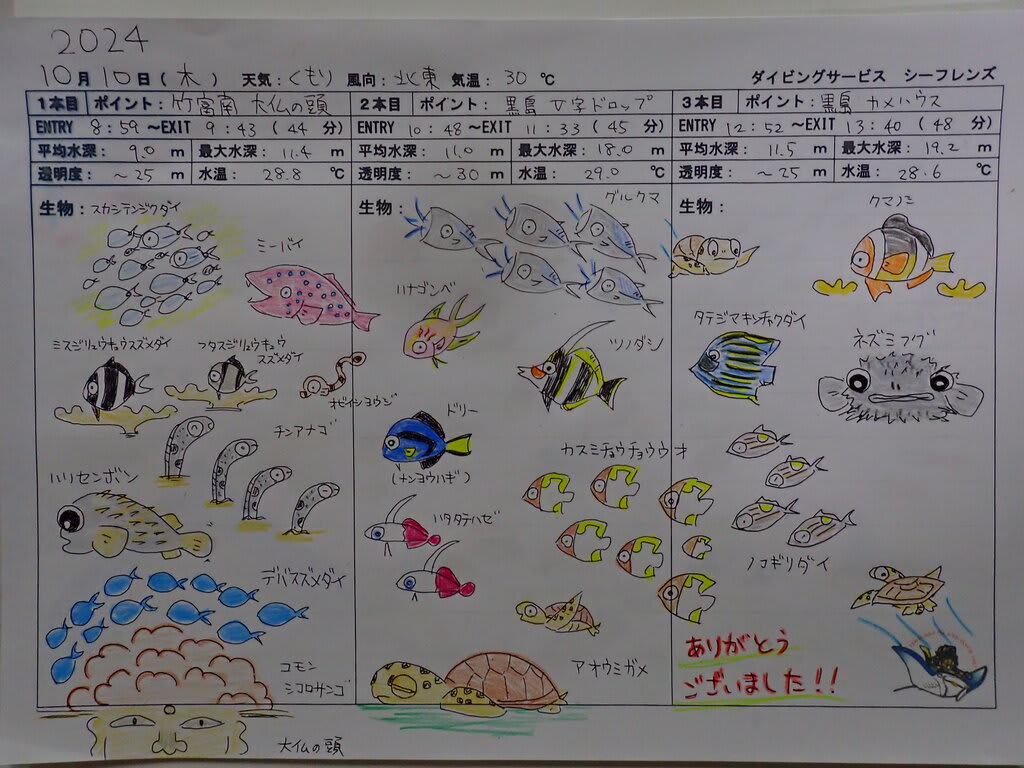 2024
10月10日(木) 天気:くもり 風向:北東 気温:30℃ ダイビングサービス シーフレンズ
1本目 ポイント:竹富南 大仏の頭
ENTRY 8:59~EXIT 9:43(44分)
平均水深:9.0m 最大水深:11.4m
透明度:~25m 水温:28.8℃
生物:スカシテンジクダイ
ミーバイ
ミスジリュウキュウスズメダイ
フタスジリュウキュウ
スズメダイ
オビイシヨウジ
チンアナゴ
ハリセンボン
デバスズメダイ
コモン
シコロサンゴ
大仏の頭
2本目 ポイント:黒島 V字ドロップ
ENTRY 10:48~EXIT 11:33(45分)
平均水深:11.0m 最大水深:18.0m
透明度:~30m 水温:29.0℃
生物:
グルクマ
ハナゴンベ
ツノダシ
ドリー
(ナンヨウハギ)
カスミチョウチョウウオ
ハタタテハゼ
アオウミガメ
3本目 ポイント:黒島 カメハウス
ENTRY 12:52~EXIT 13:40(48分)
平均水深:11.5m 最大水深:19.2m
透明度:~25m 水温:28.6℃
生物:
クマノミ
タテジマキンチャクダイ
ネズミフグ
ノコギリダイ
ありがとう
ございました!!